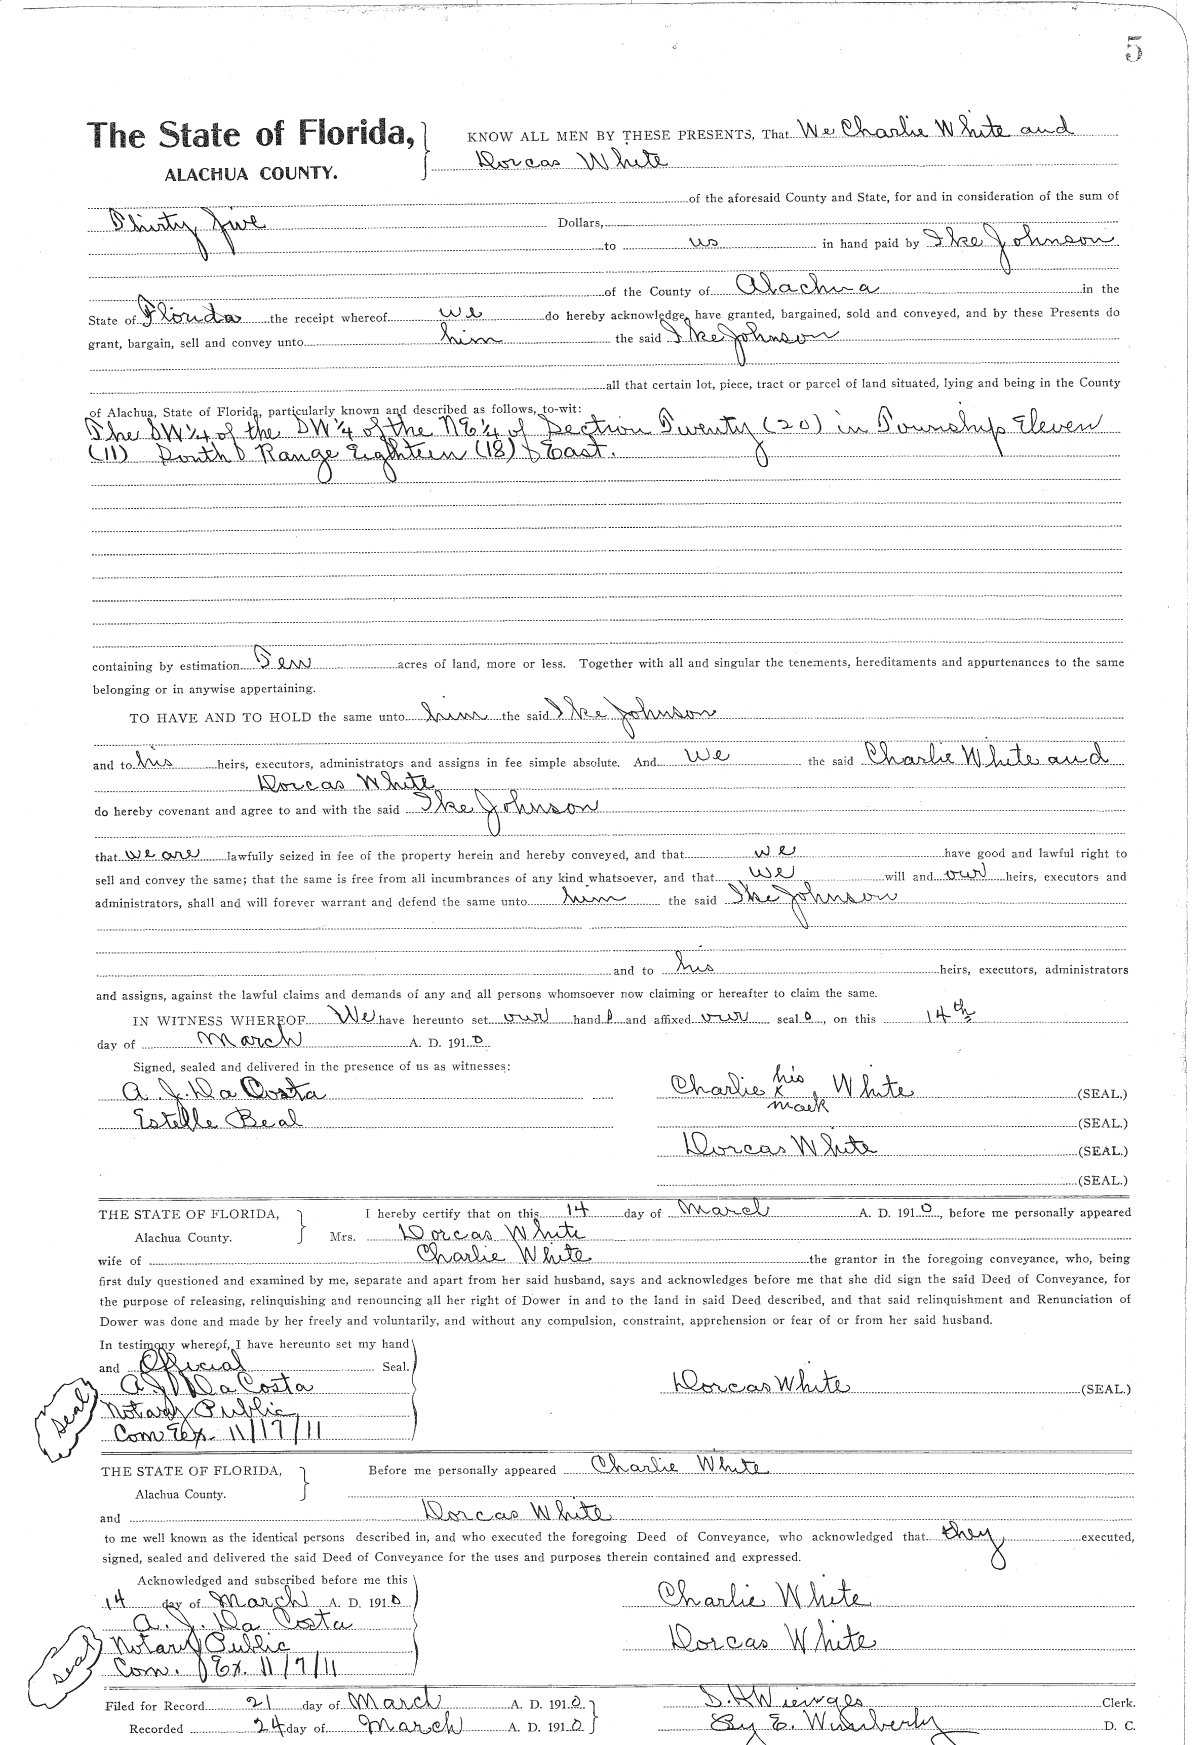 5
The State of Florida, KNOW ALL MEN BY THESE PRESENTS, That We Charlie White and
ALACHUA COUNTY. Dorcas White
of the aforesaid County and State, for and in consideration of the sum of
Thirty five Dollars,
to us in hand paid by Ike Johnson
of the County of Alachua in the
State of Florida the receipt whereof we do hereby acknowledge, have granted, bargained, sold and conveyed, and by these Presents do
grant, bargain, sell and convey unto him the said Ike Johnson
all that certain lot, piece, tract or parcel of land situated, lying and being in the County
of Alachua, State of Florida, particularly known and described as follows, to-wit:
The SW 1/4 of the SW 1/4 of the NE 1/4 of Section Twenty (20) in Township Eleven
(11) South Range Eighteen (18) East.
containing by estimation Ten acres of land, more or less. Together with all and singular the tenements, hereditaments and appurtenances to the same
belonging or in anywise appertaining.
TO HAVE AND TO HOLD the same unto him the said Ike Johnson
and to his heirs, executors, administrators and assigns in fee simple absolute. And we the said Charlie White and
Dorcas White
do hereby covenant and agree to and with the said Ike Johnson
that we are lawfully seized in fee of the property herein and hereby conveyed, and that we have good and lawful right to
sell and convey the same; that the same is free from all incumbrances of any kind whatsoever, and that we will and our heirs, executors and
administrators, shall and will forever warrant and defend the same unto him the said Ike Johnson
and to his heirs, executors, administrators
and assigns, against the lawful claims and demands of any and all persons whomsoever now claiming or hereafter to claim the same.
IN WITNESS WHEREOF We have hereunto set our hands and affixed our seals, on this 14th
day of March A. D. 1910
Signed, sealed and delivered in the presence of us as witnesses:
A. J. Da Costa Charlie his x mark White (SEAL.)
Estelle Beal (SEAL.)
Dorcas White (SEAL.)
(SEAL.)
THE STATE OF FLORIDA, I hereby certify that on this 14 day of March A. D. 1910, before me personally appeared
Alachua County. Mrs. Dorcas White
wife of Charlie White the grantor in the foregoing conveyance, who, being
first duly questioned and examined by me, separate and apart from her said husband, says and acknowledges before me that she did sign the said Deed of Conveyance, for
the purpose of releasing, relinquishing and renouncing all her right of Dower in and to the land in said Deed described, and that said relinquishment and Renunciation of
Dower was done and made by her freely and voluntarily, and without any compulsion, constraint, apprehension or fear of or from her said husband.
In testimony whereof, I have hereunto set my hand
and Official Seal.
A. J. Da Costa Dorcas White (SEAL.)
seal Notary Public
Com Ex. 11/17/11
THE STATE OF FLORIDA, Before me personally appeared Charlie White
Alachua County.
and Dorcas White
to me well known as the identical persons described in, and who executed the foregoing Deed of Conveyance, who acknowledged that they executed,
signed, sealed and delivered the said Deed of Conveyance for the uses and purposes therein contained and expressed.
Acknowledged and subscribed before me this
14 day of March A. D. 1910 Charlie White
A. J. Da Costa
seal Notary Public Dorcas White
Com. Ex. 11/7/11
Filed for Record 21 day of March A. D. 1910 S. H. Wienges Clerk.
Recorded 24 day of March A. D. 1910 By E. Wimberly D. C.